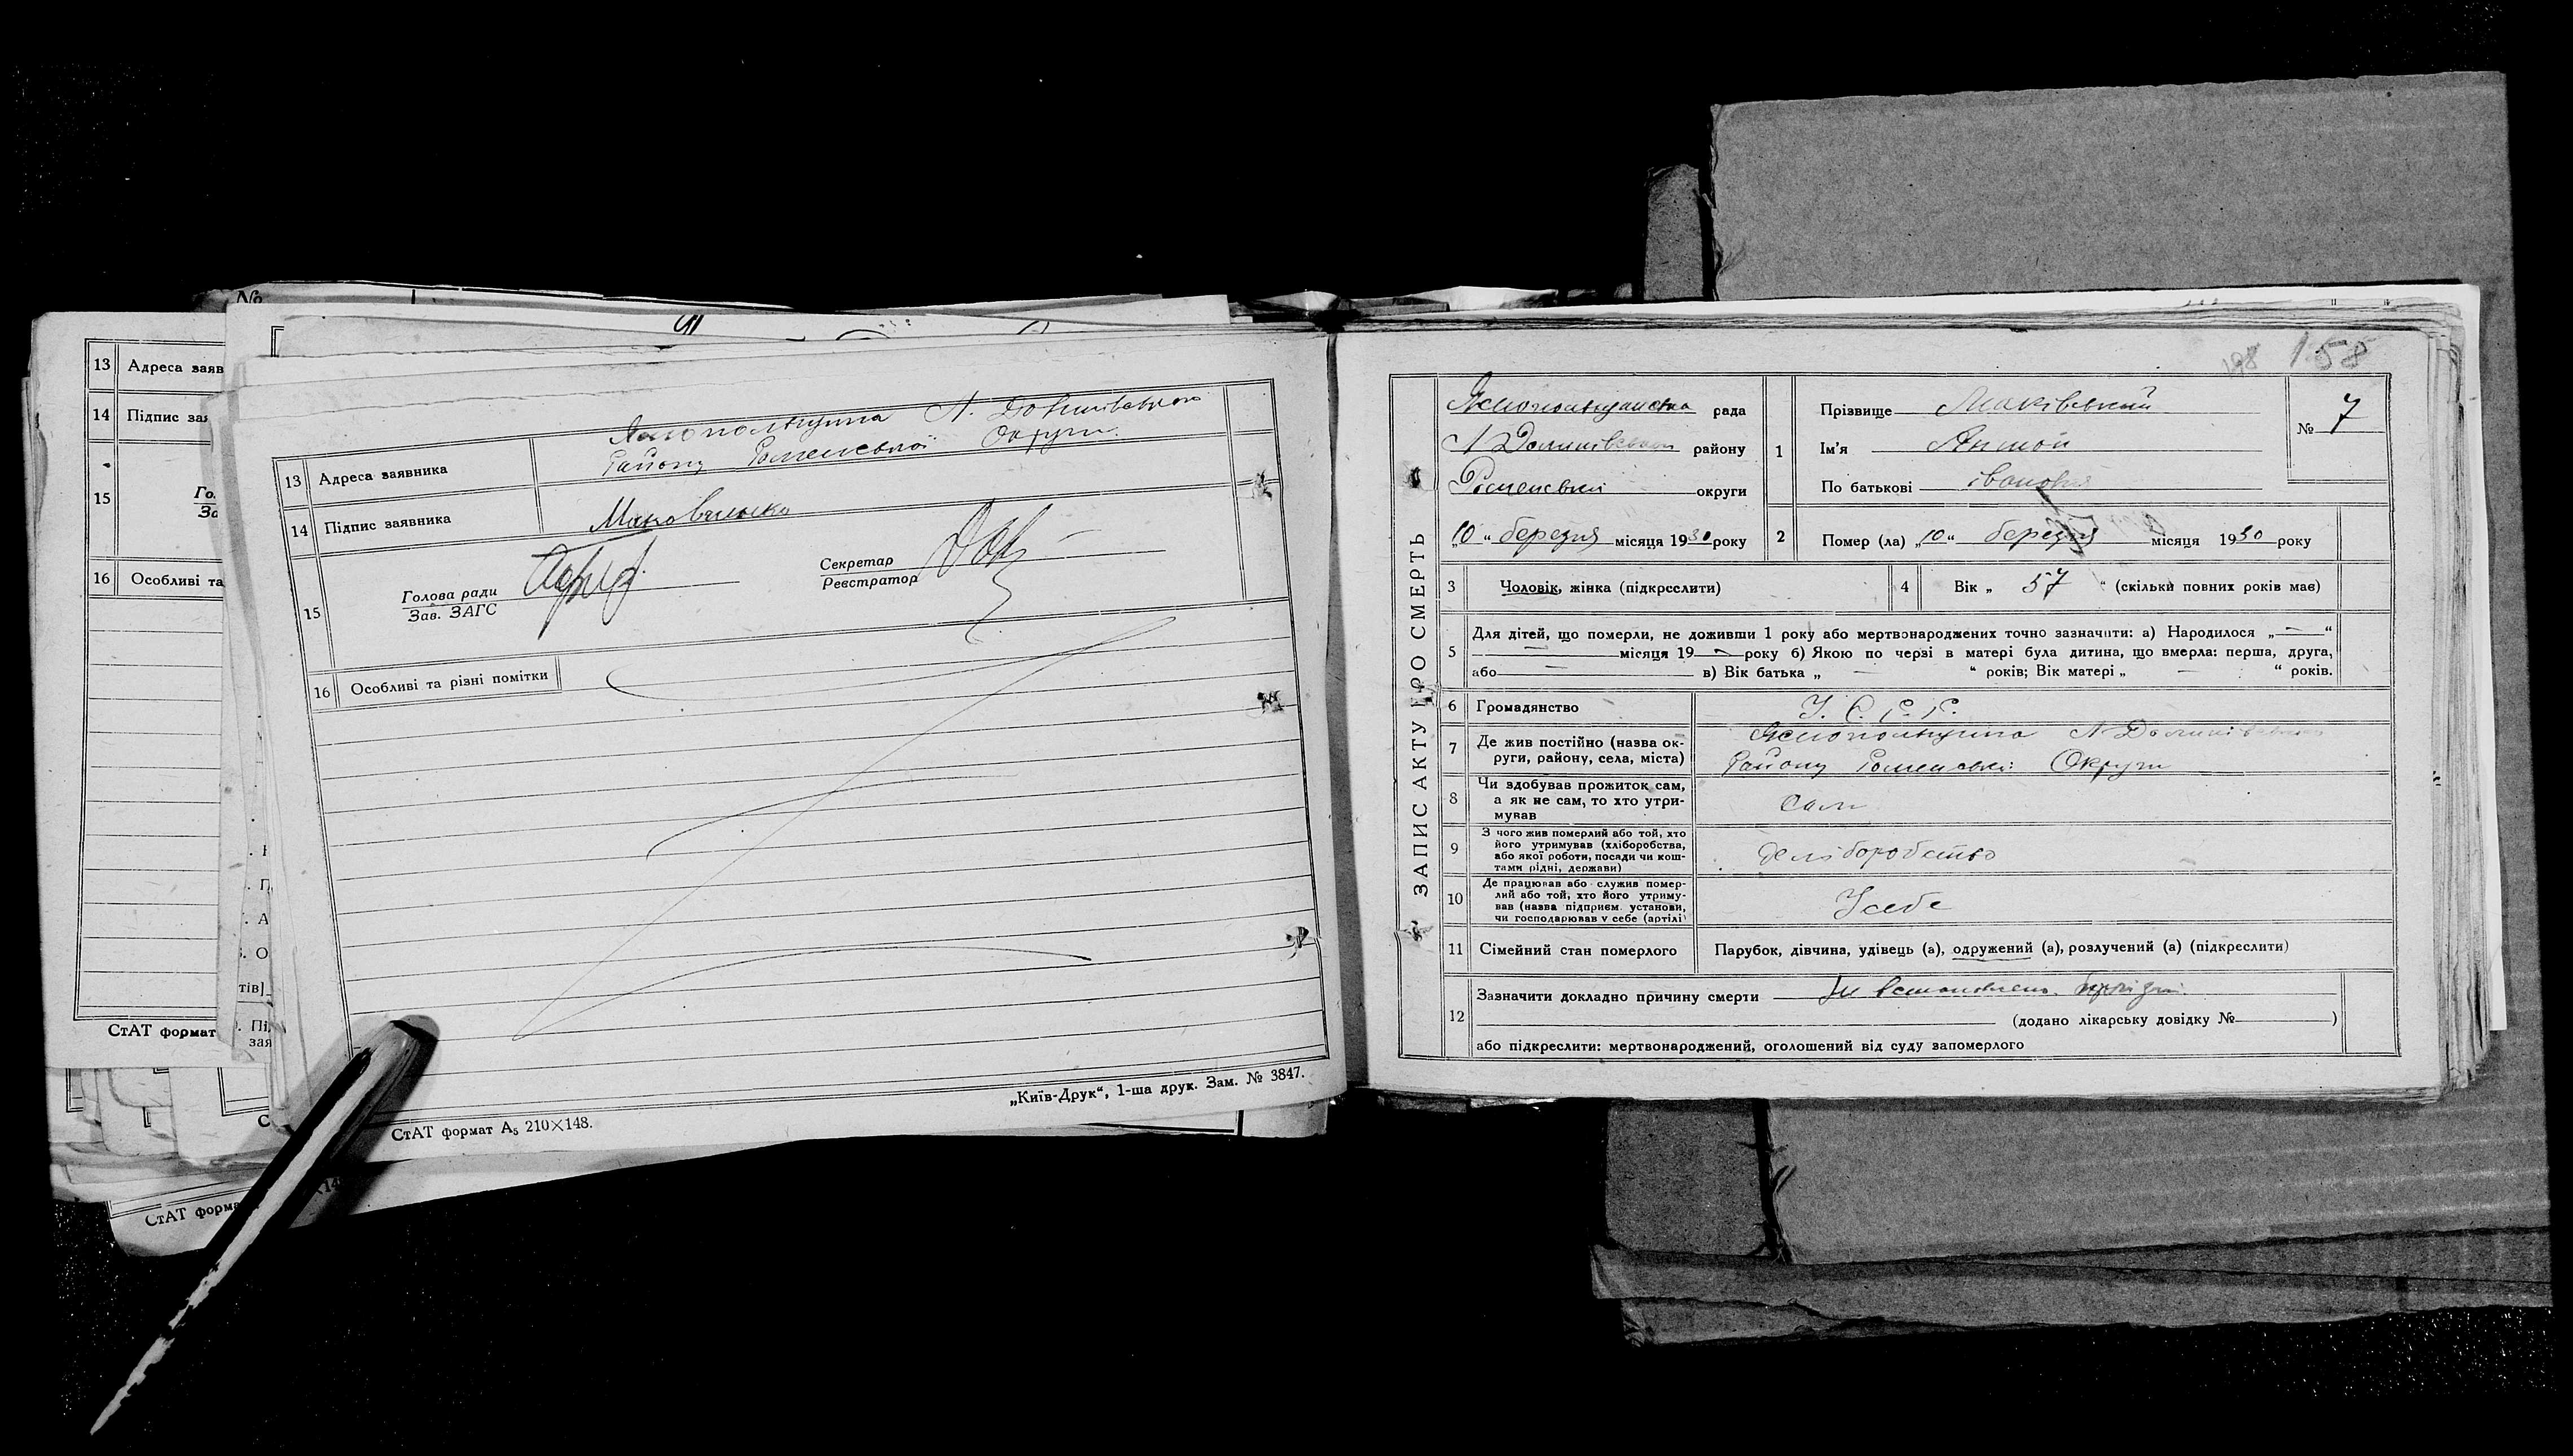 №
13 Адреса заяв
14 Підпис зая
15
Го
За
16 Особливі та
СтАТ формат
СтАТ форма
Району Роменської Округи
13 Адреса заявника
14 Підпис заявника
15 Голова ради
Зав. ЗАГС
Секретар
Реєстратор
16 Особливі та різні помітки
„Київ-Друк“, 1-ша друк. Зам. № 3847.
СтАТ формат А₅ 210×148.
158
ЗАПИС АКТУ ПРО СМЕРТЬ
рада
району
округи
„10“ березня місяця 1930 року
1 Прізвище Маківський
Ім'я Антон
По батькові Іванович
№ 7
2 Помер (ла) „10“ березня місяця 1930 року
3 Чоловік, жінка (підкреслити)
4 Вік „ 57 “ (скільки повних років має)
5 Для дітей, що померли, не доживши 1 року або мертвонароджених точно зазначити: а) Народилося „—“
— місяця 19— року б) Якою по черзі в матері була дитина, що вмерла: перша, друга,
або — в) Вік батька „ — “ років; Вік матері „ — “ років.
6 Громадянство У. С. Р. Р.
7 Де жив постійно (назва ок-
руги, району, села, міста)
Району Роменської Округи
8 Чи здобував прожиток сам,
а як не сам, то хто утри-
мував
сам
9 З чого жив померлий або той, хто
його утримував (хліборобства,
або якої роботи, посади чи кош-
тами рідні, держави)
10 Де працював або служив помер-
лий або той, хто його утриму-
вав (назва підприєм. установи,
чи господарював у себе (артілі)
У себе
11 Сімейний стан померлого Парубок, дівчина, удівець (а), одружений (а), розлучений (а) (підкреслити)
12 Зазначити докладно причину смерти Не встановлено
(додано лікарську довідку № )
або підкреслити: мертвонароджений, оголошений від суду запомерлого